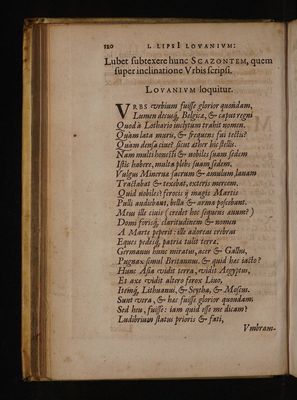 120 L. LIPSI LOVANIVM:
Lubet subtexere hunc SCAZONTEM, quem
super inclinatione Vrbis scripsi.
LOVANIVM loquitur.
VRBS urbium fuisse glorior quondam,
Lumen decusq́, Belgica, & caput regni
Quod à Lothario inclytum trahit nomen.
Quàm lata muris, & frequens fui tectis?
Quàm densa ciue? sicut æther hic stellis.
Nam multi honesti & nobiles suam sedem
Istîc habere, multa plebs suam sedem,
Vulgus Minerva sacrum & æmulum lanam
Tractabat & texebat, exteris mercem.
Quid nobiles? ferocis ij magis Martis
Pulli audiebant, bella & arma poscebant.
Meus ille ciuis (credet hoc sequens æuum?)
Domi forisq́, claritudinem & nomen
A Marte peperit: ille adoreas crebras
Eques pedesq́, patria tulit terræ.
Germanus hunc miratus, acer & Gallus,
Pugnax simul Britannus. & quid hæc iacto?
Hunc Asia vidit terra, vidit Ægyptus,
Et axe vidit altero ferox Liuo,
Itemq́, Lithuanus, & Scytha, & Moscus.
Sunt vera, & hæc fuisse glorior quondam:
Sed heu, fuisse: iam quid esse me dicam?
Ludibrium status prioris & fati,
Vmbram-